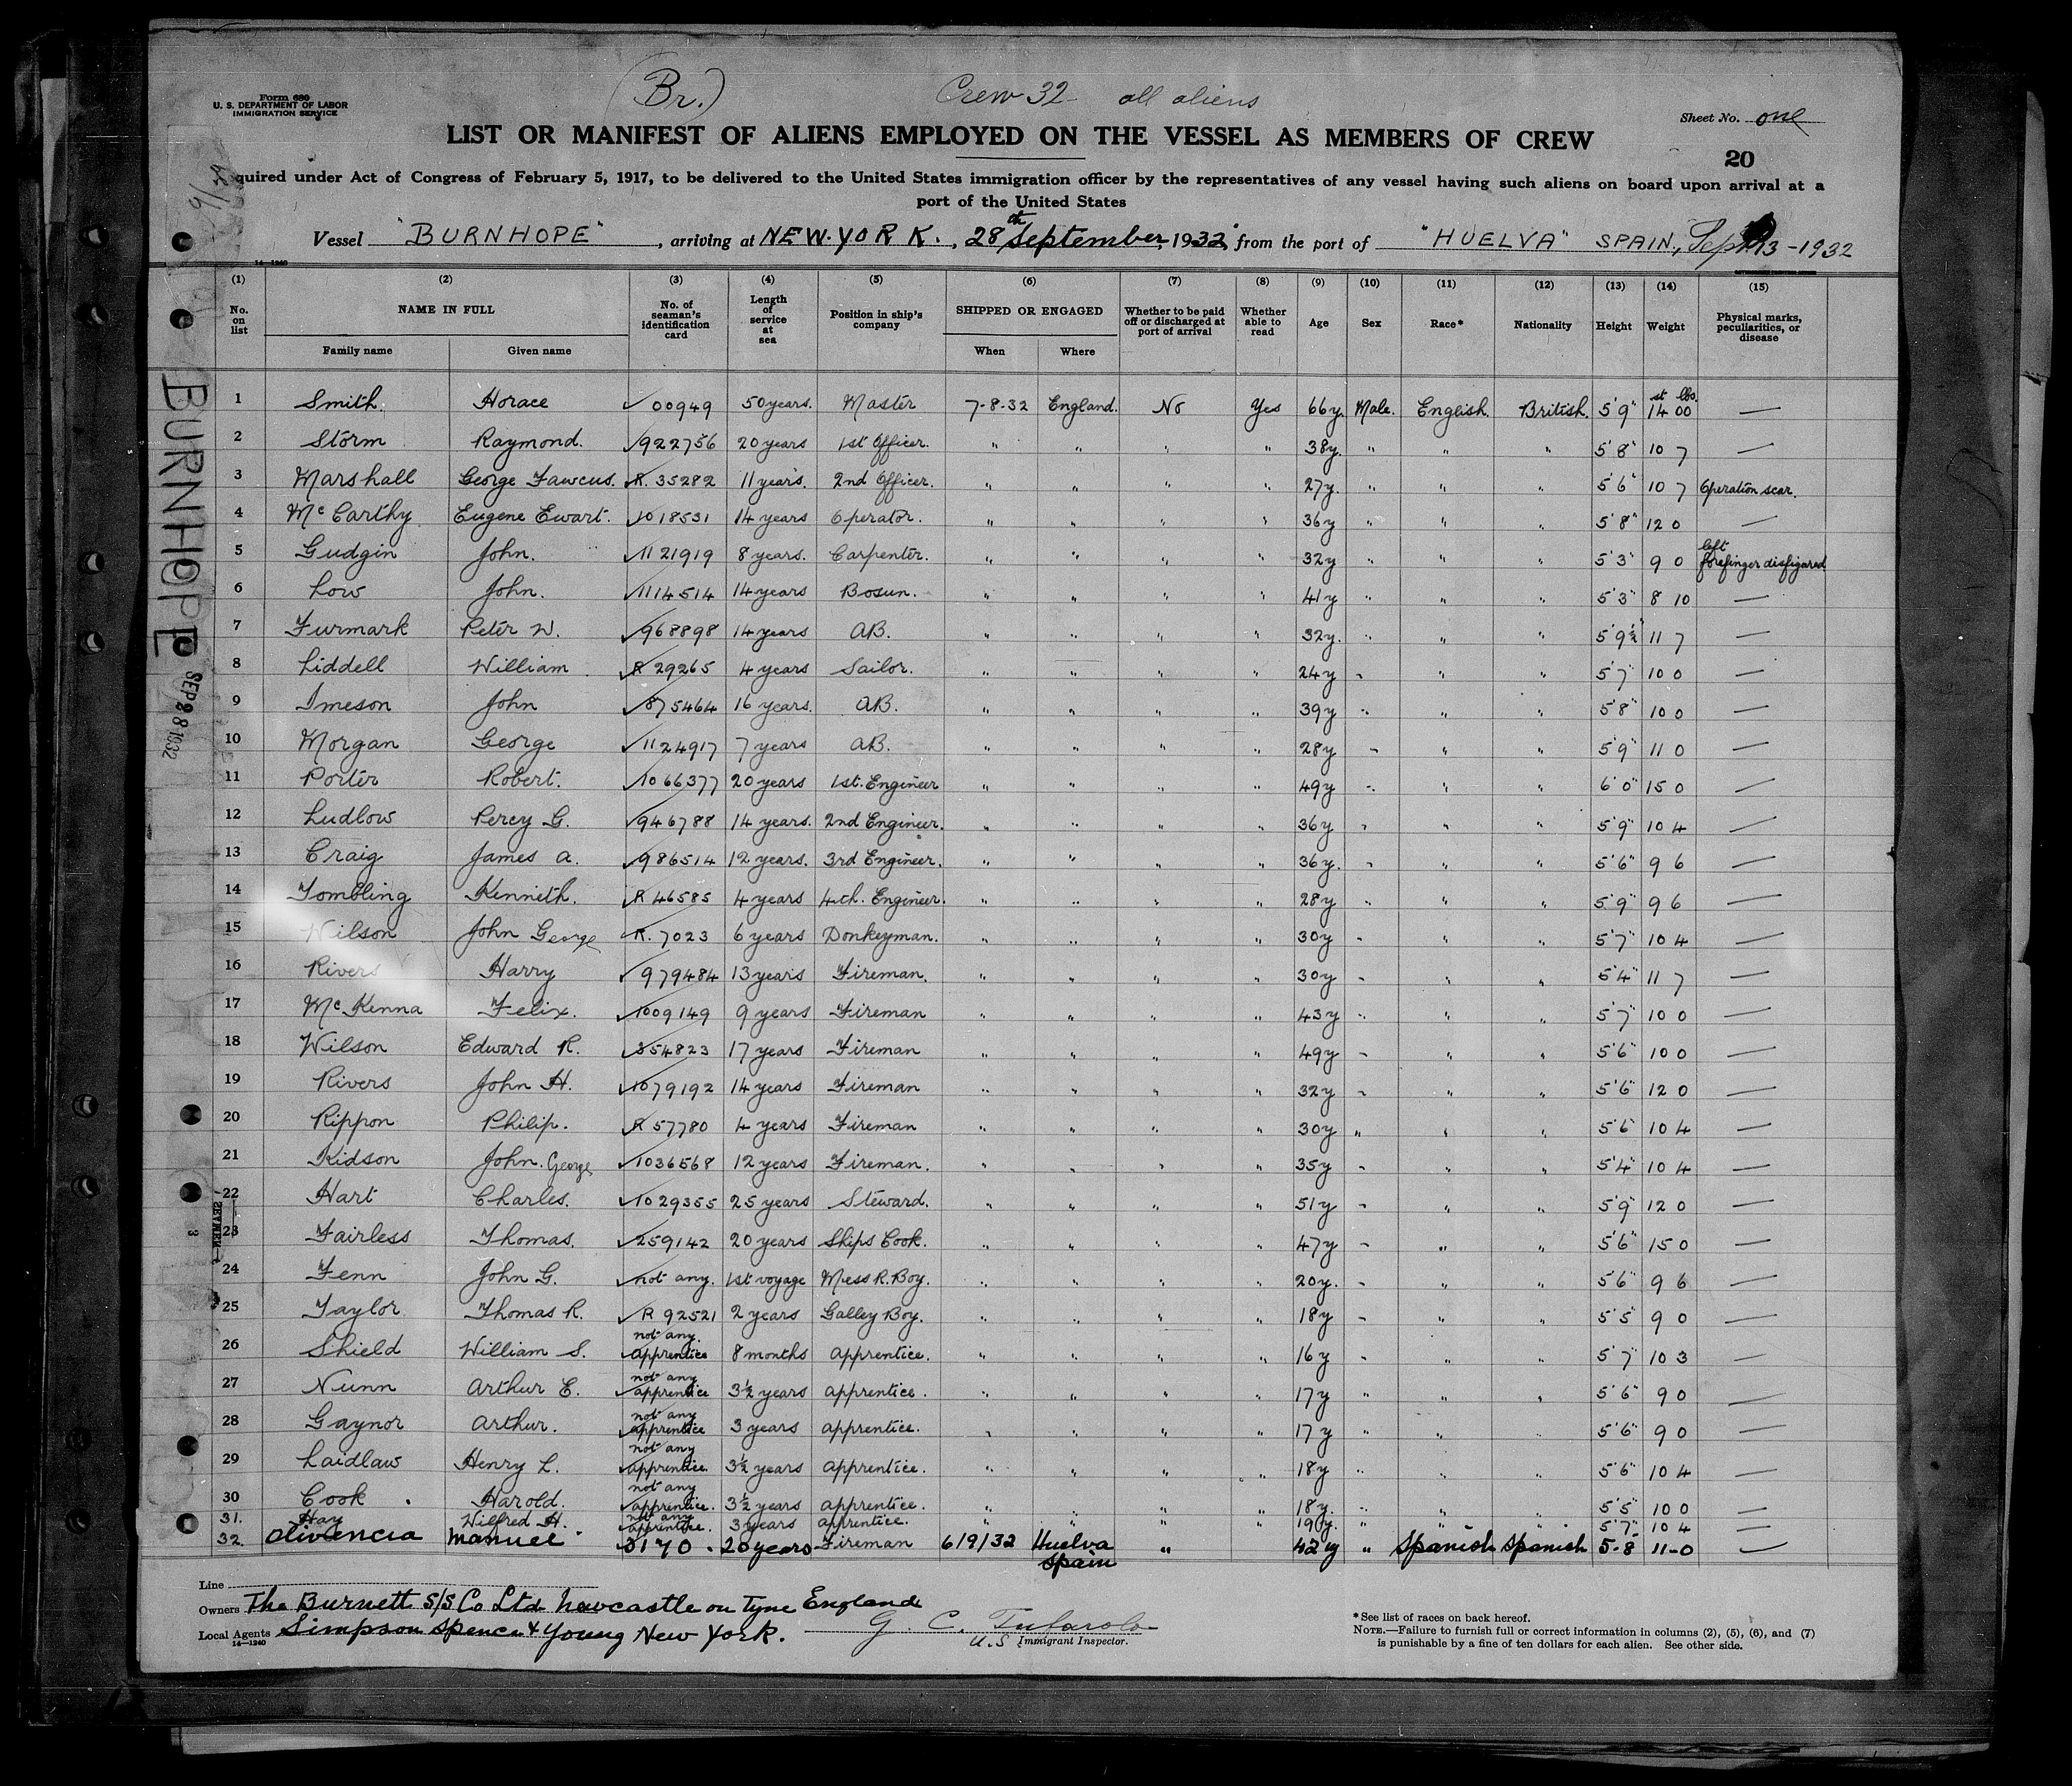 Form 680
U. S. DEPARTMENT OF LABOR
IMMIGRATION SERVICE
(Br.)
Crew 32 all aliens
Sheet No. one
LIST OR MANIFEST OF ALIENS EMPLOYED ON THE VESSEL AS MEMBERS OF CREW
20
quired under Act of Congress of February 5, 1917, to be delivered to the United States immigration officer by the representatives of any vessel having such aliens on board upon arrival at a
port of the United States
Vessel "BURNHOPE", arriving at NEW.YORK., 28th September, 1932, from the port of "HUELVA" SPAIN, Sept 13-1932
14—1240
(1) (2) (3) (4) (5) (6) (7) (8) (9) (10) (11) (12) (13) (14) (15)
No. on list NAME IN FULL No. of seaman's identification card Length of service at sea Position in ship's company SHIPPED OR ENGAGED Whether to be paid off or discharged at port of arrival Whether able to read Age Sex Race* Nationality Height Weight Physical marks, peculiarities, or disease
Family name Given name When Where
st lbs.
1 Smith. Horace 00949 50 years. Master 7-8-32 England. No Yes 66y. Male. English. British. 5'9" 14 00 —
2 Storm Raymond. 922756 20 years 1st Officer. " " " " 38y. " " " 5'8" 10 7 —
3 Marshall George Fawcus. R. 35282 11 years. 2nd Officer. " " " " 27y. " " " 5'6" 10 7 Operation scar.
4 McCarthy Eugene Ewart. 1018531 14 years Operator. " " " " 36y " " " 5'8" 12 0 —
5 Gudgin John. 1121919 8 years. Carpenter. " " " " 32y " " " 5'3" 9 0 left forefinger disfigured
6 Low John. 1114514 14 years Bosun. " " " " 41y " " " 5'3" 8 10 —
7 Furmark Peter W. 968898 14 years AB. " " " " 32y. " " " 5'9½" 11 7 —
8 Liddell William R 29265 4 years Sailor. " " " " 24y " " " 5'7" 10 0 —
9 Imeson John 875464 16 years. AB. " " " " 39y " " " 5'8" 10 0 —
10 Morgan George 1124917 7 years AB. " " " " 28y " " " 5'9" 11 0 —
11 Porter Robert. 1066377 20 years 1st. Engineer " " " " 49y " " " 6'0" 15 0 —
12 Ludlow Percy G. 946788 14 years. 2nd Engineer. " " " " 36y " " " 5'9" 10 4 —
13 Craig James A. 986514 12 years. 3rd Engineer. " " " " 36y. " " " 5'6" 9 6 —
14 Tombling Kenneth. R 46585 4 years 4th. Engineer. " " " " 28y " " " 5'9" 9 6 —
15 Wilson John George R. 7023 6 years Donkeyman. " " " " 30y " " " 5'7" 10 4 —
16 Rivers Harry 979484 13 years Fireman. " " " " 30y " " " 5'4" 11 7 —
17 McKenna Felix. 1009149 9 years Fireman " " " " 43y " " " 5'7" 10 0 —
18 Wilson Edward R. 854823 17 years Fireman " " " " 49y " " " 5'6" 10 0 —
19 Rivers John H. 1079192 14 years Fireman " " " " 32y " " " 5'6" 12 0 —
20 Rippon Philip. R 57780 4 years Fireman " " " " 30y " " " 5'6" 10 4 —
21 Kidson John. George 1036568 12 years Fireman. " " " " 35y " " " 5'4" 10 4 —
22 Hart Charles. 1029355 25 years Steward. " " " " 51y " " " 5'9" 12 0 —
23 Fairless Thomas. 259142 20 years Ships Cook. " " " " 47y " " " 5'6" 15 0 —
24 Fenn John G. not any. 1st voyage Mess R. Boy. " " " " 20y. " " " 5'6" 9 6 —
25 Taylor Thomas R. R 92521 2 years Galley Boy. " " " " 18y " " " 5'5" 9 0 —
26 Shield William S. not any. apprentice 8 months apprentice. " " " " 16y " " " 5'7" 10 3 —
27 Nunn Arthur E. not any apprentice 3½ years apprentice. " " " " 17y " " " 5'6" 9 0 —
28 Gaynor Arthur. not any apprentice 3 years apprentice. " " " " 17y " " " 5'6" 9 0 —
29 Laidlaw Henry L. not any apprentice. 3½ years apprentice. " " " " 18y " " " 5'6" 10 4 —
30 Cook. Harold. not any apprentice. 3½ years apprentice. " " " " 18y. " " " 5'5" 10 0 —
31. Hay Wilfred H. not any apprentice. 3 years apprentice. " " " " 19y. " " " 5'7" 10 4 —
32. Olivencia Manuel 3170. 20 years Fireman 6/9/32 Huelva Spain " 42y " Spanish Spanish 5-8 11-0 —
BURNHOPE
SEP 28 1932
Line
Owners The Burnett S/S Co Ltd Newcastle on Tyne England
Local Agents Simpson Spence & Young New York.
14—1240
U.S. Immigrant Inspector.
*See list of races on back hereof.
NOTE.—Failure to furnish full or correct information in columns (2), (5), (6), and (7)
is punishable by a fine of ten dollars for each alien. See other side.